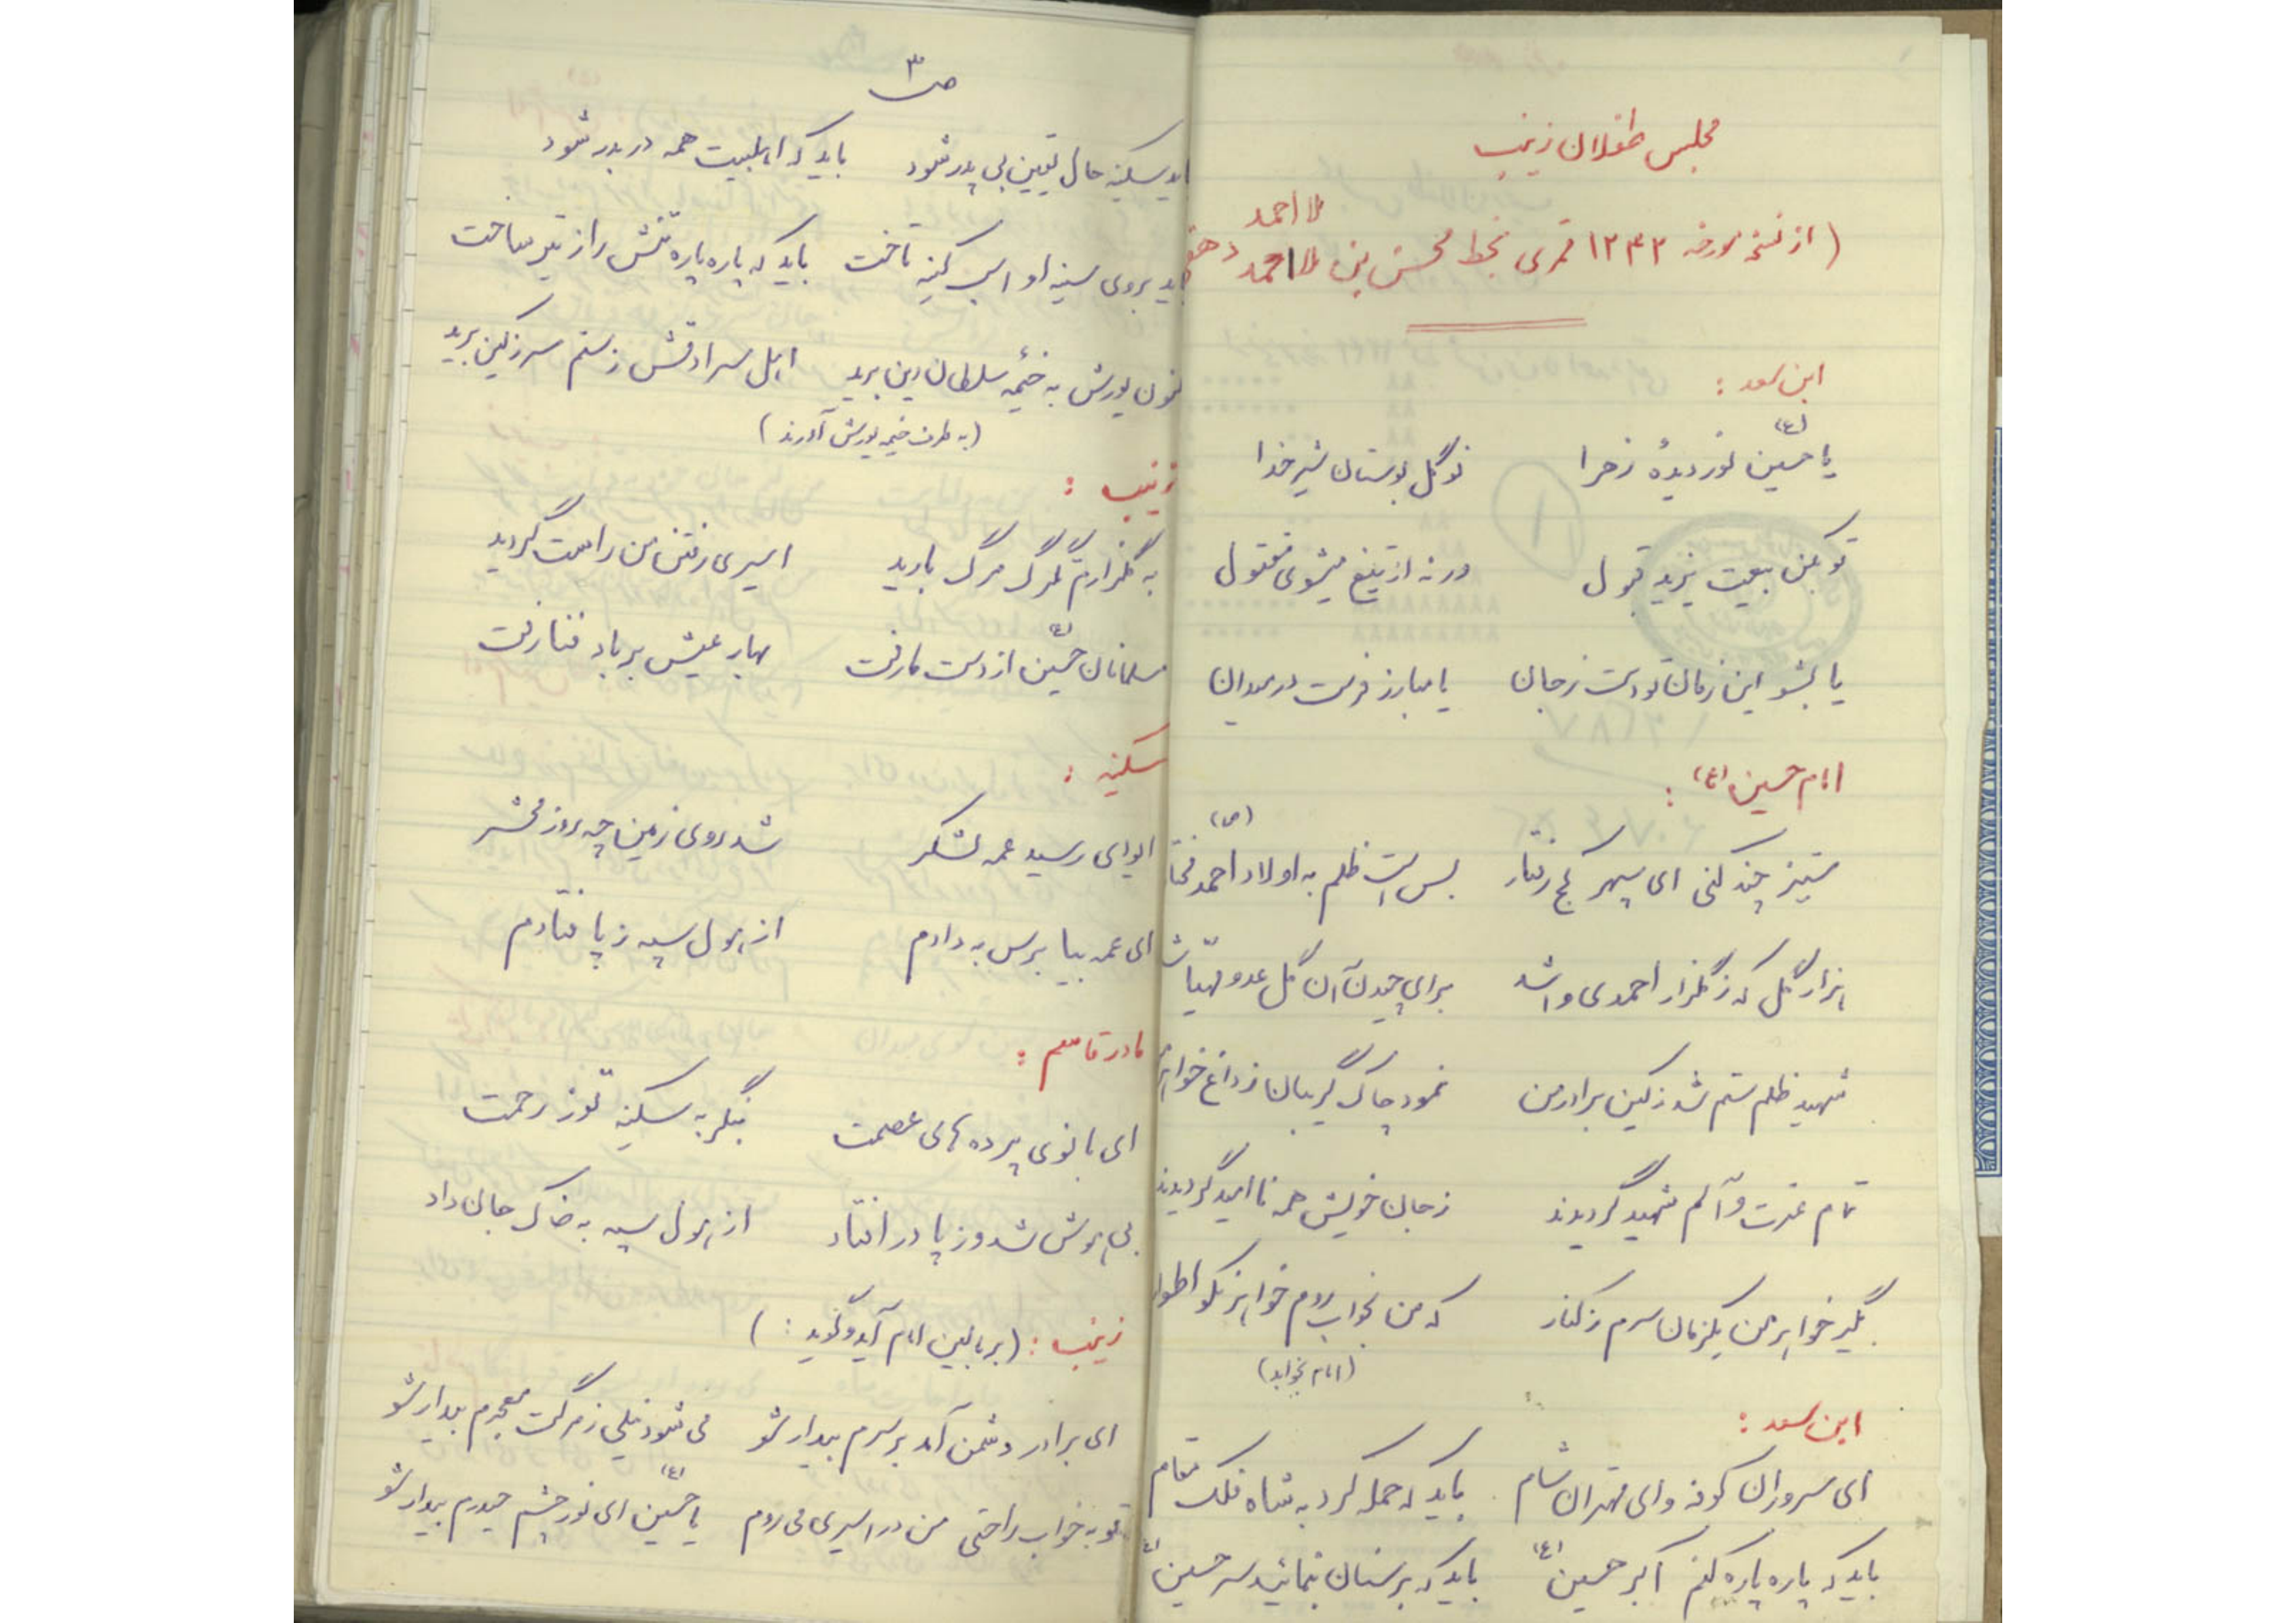 مجلس طفلان زینب
ملا احمد
(از نسخه مورخه ۱۲۴۳ قمری بخط محسن بن ملا احمد
ابن سعد :
(ع)
یا حسین نور دیدهٔ زهرا    نوگل بوستان شیر خدا
تو بکن بیعت یزید قبول    ورنه از تیغ میشوی مقتول
یا بشو این زمان تو دست ز جان    یا مبارز فرست در میدان
امام حسین (ع) :
(ص)
ستیز چند کنی ای سپهر کج رفتار    بس است ظلم به اولاد احمد مختا
هزار گل که ز گلزار احمدی وا شد    برای چیدن آن گل عدو مهیا ش
شهید ظلم ستم شد ز کین برادر من    نمود چاک گریبان ز داغ خواهر
تمام عترت و آلم شهید گردیدند    ز جان خویش همه ناامید گردیدند
بگیر خواهر من یکزمان سرم ز کنار    که من بخواب روم خواهر نکو اطوا
(امام بخوابد)
ابن سعد :
ای سروران کوفه و ای مهتران شام    باید که حمله کرد به شاه فلک مقام
باید که پاره پاره کنم اکبر حسین (ع)    باید که بر سنان بنمائید سر حسین (ع)
ص ۳
باید سکینه حال یقین بی پدر شود    باید که اهلبیت همه در بدر شود
باید بروی سینه او اسب کینه تاخت    باید که پاره پاره تنش را ز تیر ساخت
اکنون یورش به خیمهٔ سلطان دین برید    اهل سرادقش ز ستم سر ز کین برید
(به طرف خیمه یورش آورند)
زینب :
به گلزارم تگرگ مرگ بارید    اسیری رفتن من راست گردید
مسلمانان حسین (ع) از دست ما رفت    بهار عیش بر باد فنا رفت
سکینه :
ایوای رسید عمه لشکر    شد روی زمین چه روز محشر
ای عمه بیا برس به دادم    از هول سپه ز پا فتادم
مادر قاسم :
ای بانوی پرده های عصمت    بنگر به سکینه تو ز رحمت
بی هوش شد و ز پا در افتاد    از هول سپه به خاک جان داد
زینب : (بر بالین امام آید و گوید :)
ای برادر دشمن آمد بر سرم بیدار شو    می شود نیلی ز مرگت معجرم بیدار شو
تو به خواب راحتی من در اسیری می روم    یا حسین (ع) ای نور چشم حیدرم بیدار شو